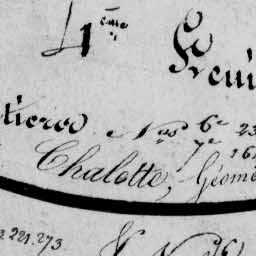 4ème Feui
tieres Nos 6e 23
7e 161
Chalotte, Géomè
221.273